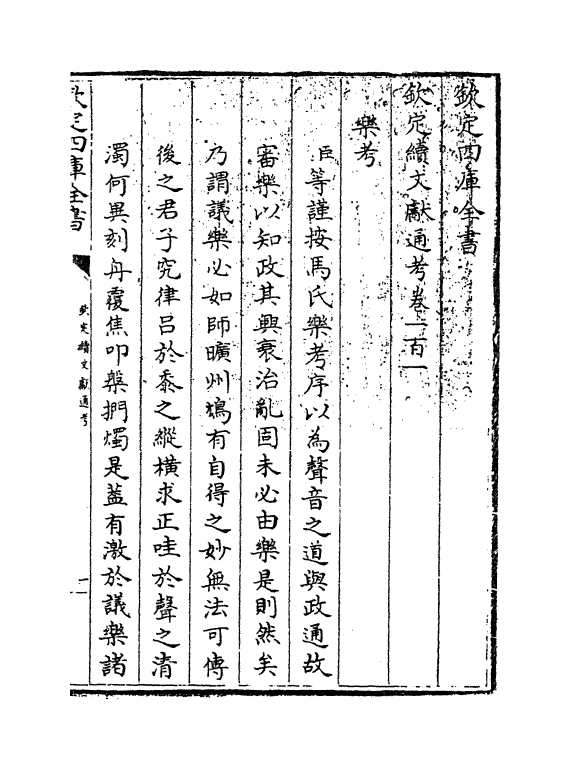 欽定四庫全書
欽定續文獻通考卷一百一
樂考
臣等謹按馬氏樂考序以為聲音之道與政通故
審樂以知政其興衰治亂固未必由樂是則然矣
乃謂議樂必如師曠州鳩有自得之妙無法可傳
後之君子究律呂於黍之縱橫求正哇於聲之清
濁何異刻舟覆蕉叩槃捫燭是蓋有激於議樂諸
欽定四庫全書
欽定續文獻通考
一